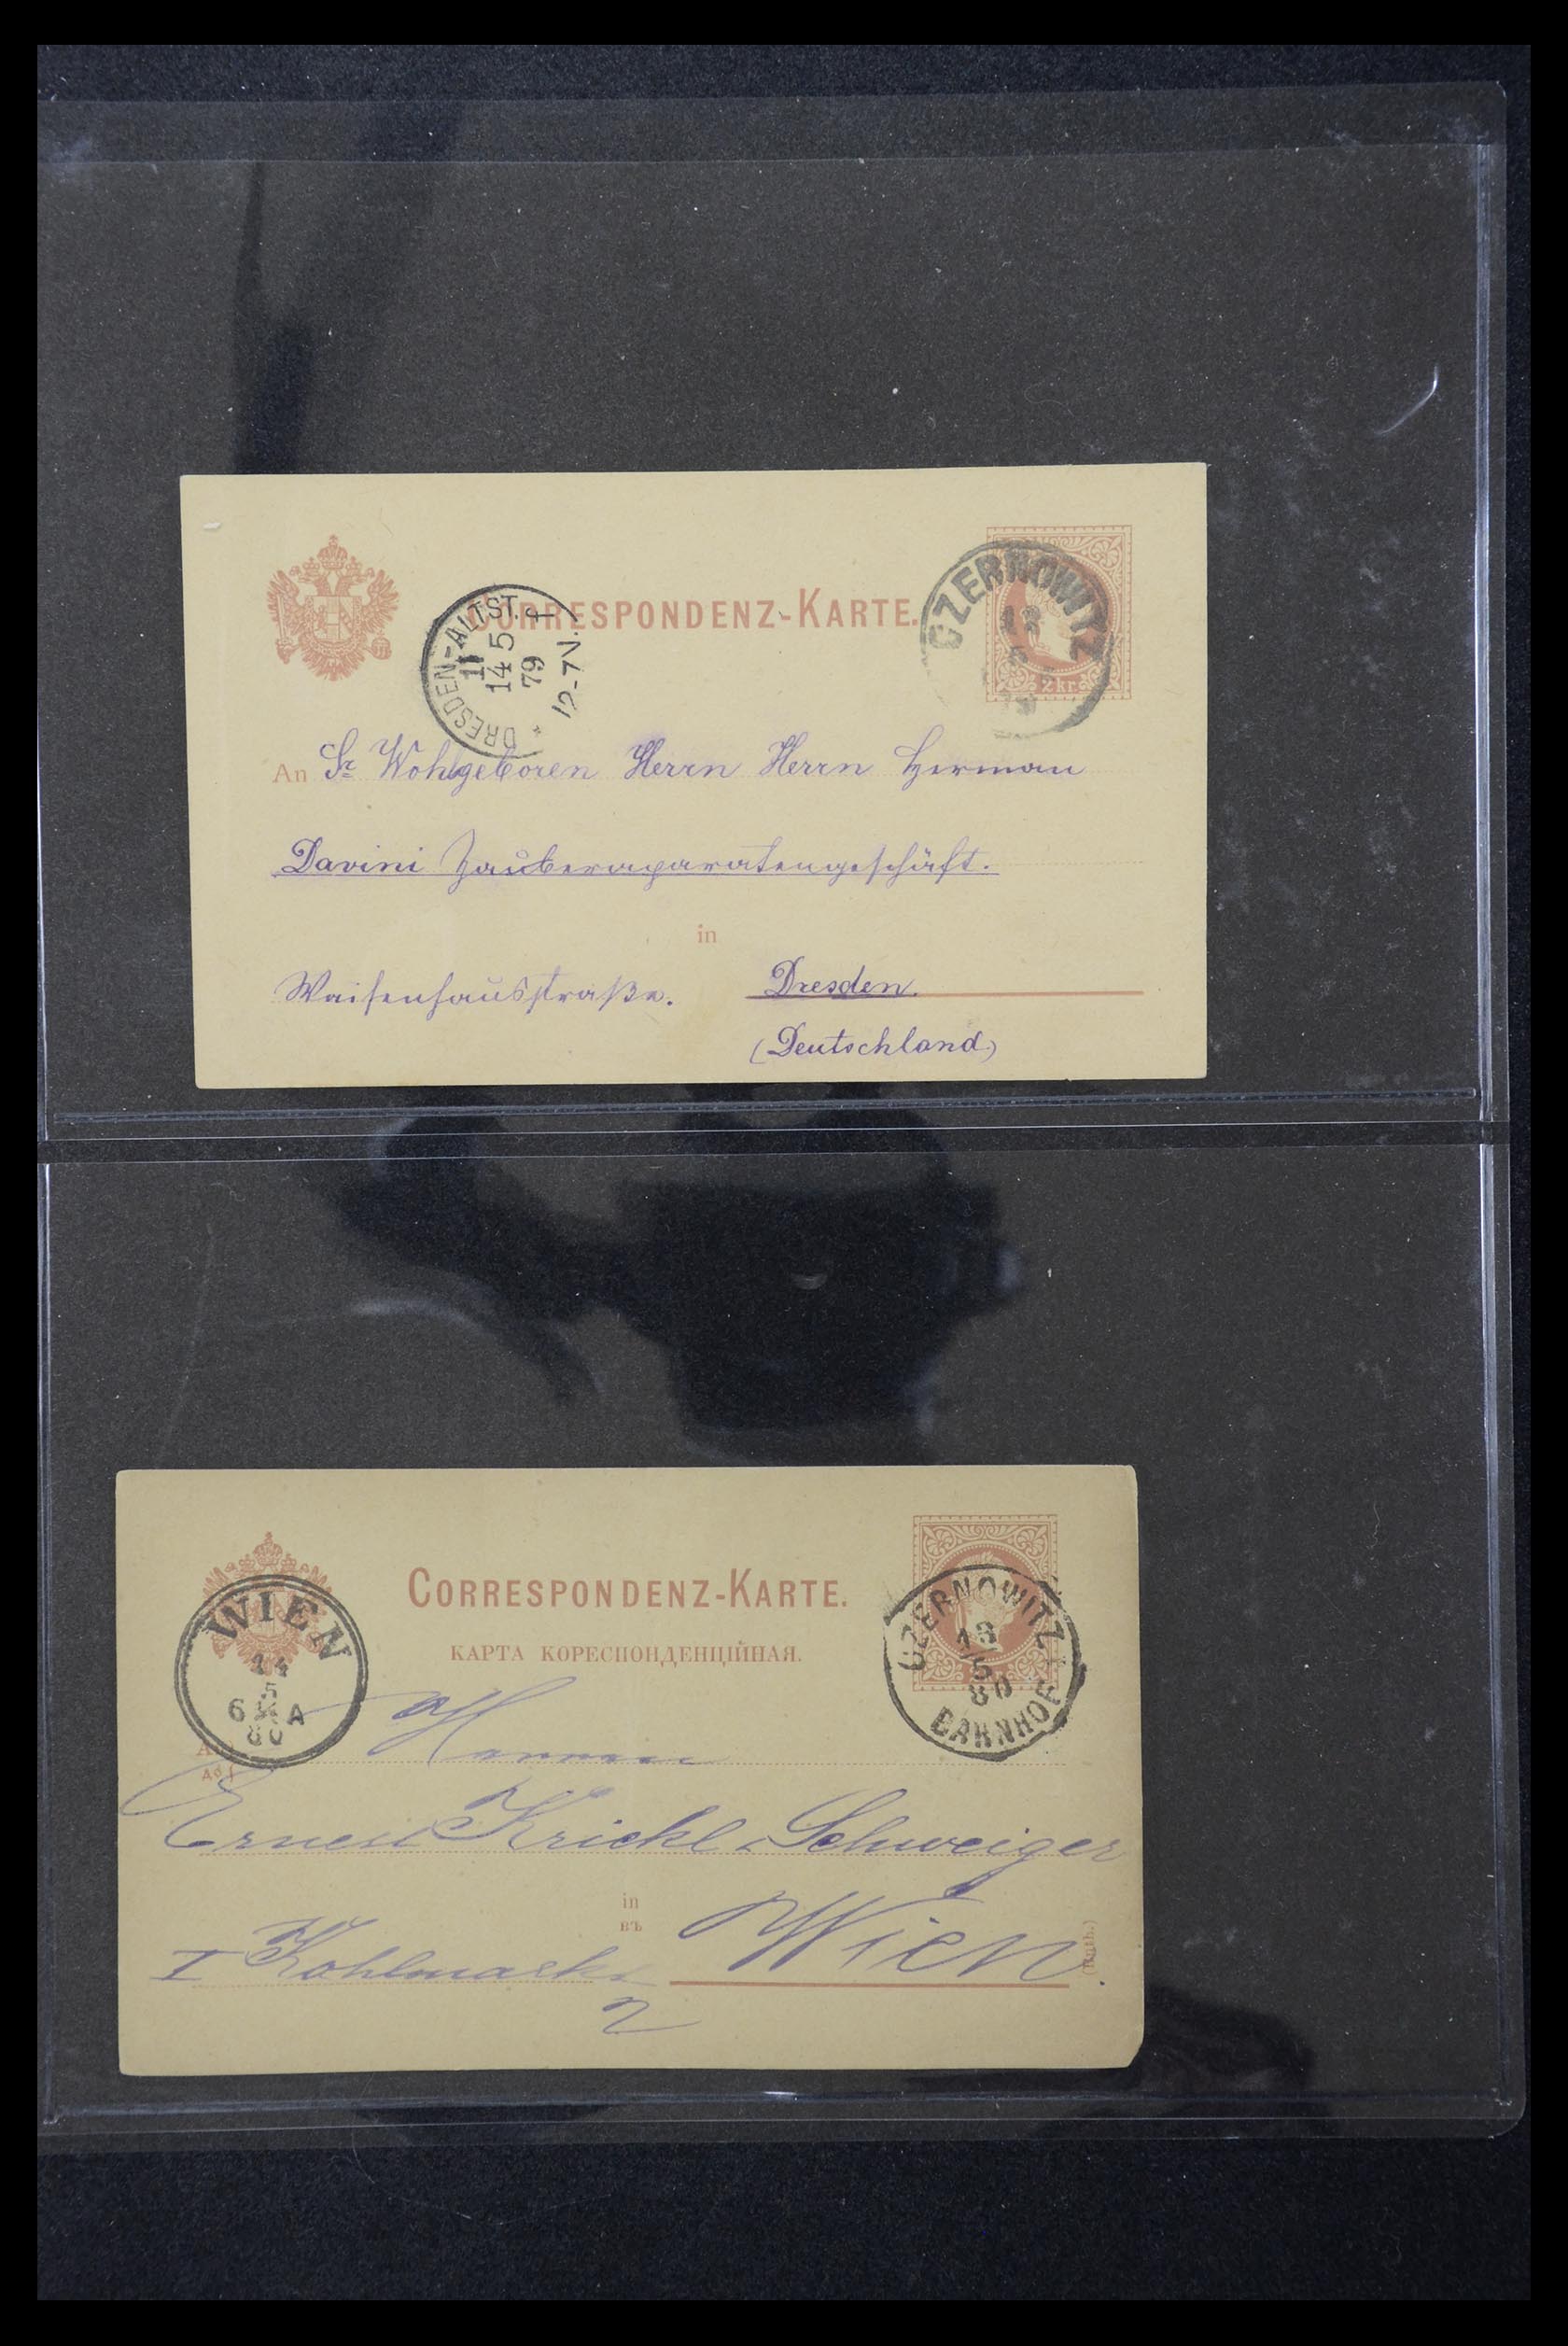 CORRESPONDENZ-KARTE.
DRESDEN-ALTST. I
II
14 5
79
12-7N.
*
CZERNOWITZ
2 kr.
An Sr Wohlgeboren Herrn Herrn Herman
Davini Zauberaparatengeschäft.
in
Waisenhausstraße. Dresden.
(Deutschland)
CORRESPONDENZ-KARTE.
КАРТА КОРЕСПОНДЕНЦІЙНАЯ.
WIEN
14
5
6 A
80
CZERNOWITZ
13
5
80
BAHNHOF
Herren
Ernest Krickl & Schweiger
in
въ
I Kohlmarkt Wien.
2
(Ruth.)